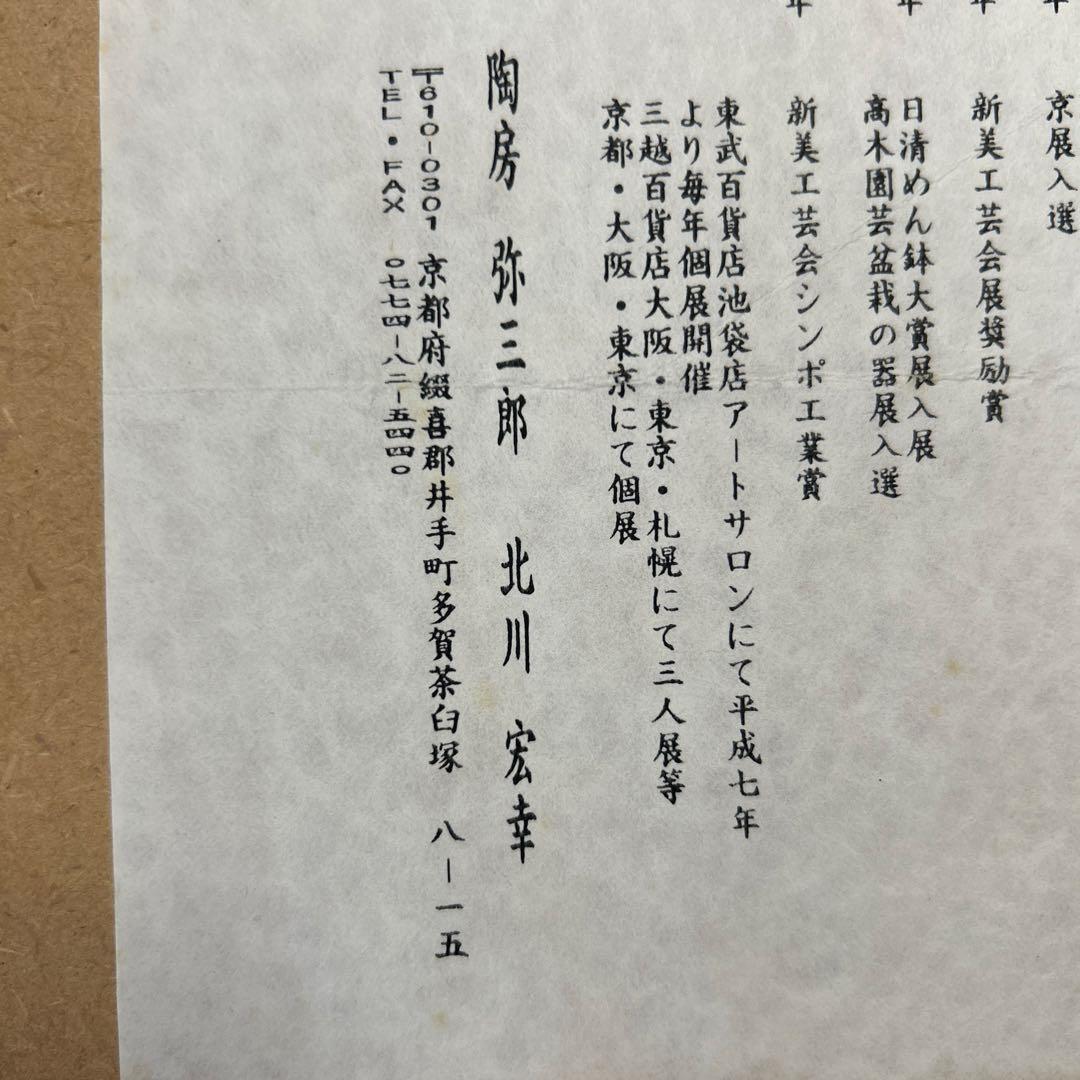 京展入選
年
新美工芸会展奨励賞
年
日清めん鉢大賞展入展
高木園芸盆栽の器展入選
年
新美工芸会シンポ工業賞
東武百貨店池袋店アートサロンにて平成七年
より毎年個展開催
三越百貨店大阪・東京・札幌にて三人展等
京都・大阪・東京にて個展
陶房 弥三郎 北川 宏幸
〒610-0301 京都府綴喜郡井手町多賀茶臼塚 八-一五
TEL・FAX 〇七七四-八二-五四四〇